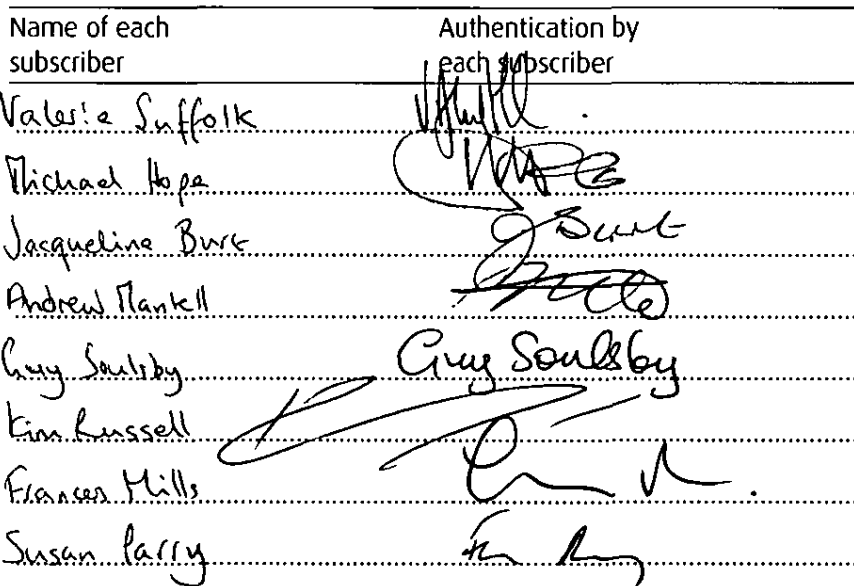 Name of each subscriber
Authentication by each subscriber
Valerie Suffolk
Michael Hope
Jacqueline Burt
J Burt
Andrew Mankell
Guy Soulsby
Guy Soulsby
Kim Russell
Frances Mills
Susan Parry